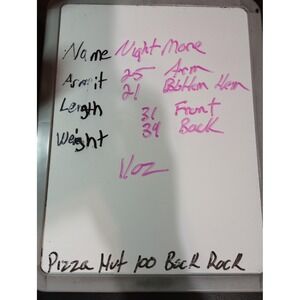 Name Night Mare
Armpit 25 Arm
21 Bottom Hem
Length 31 Front
39 Back
Weight
11oz
Pizza Hut 100 Back Rack